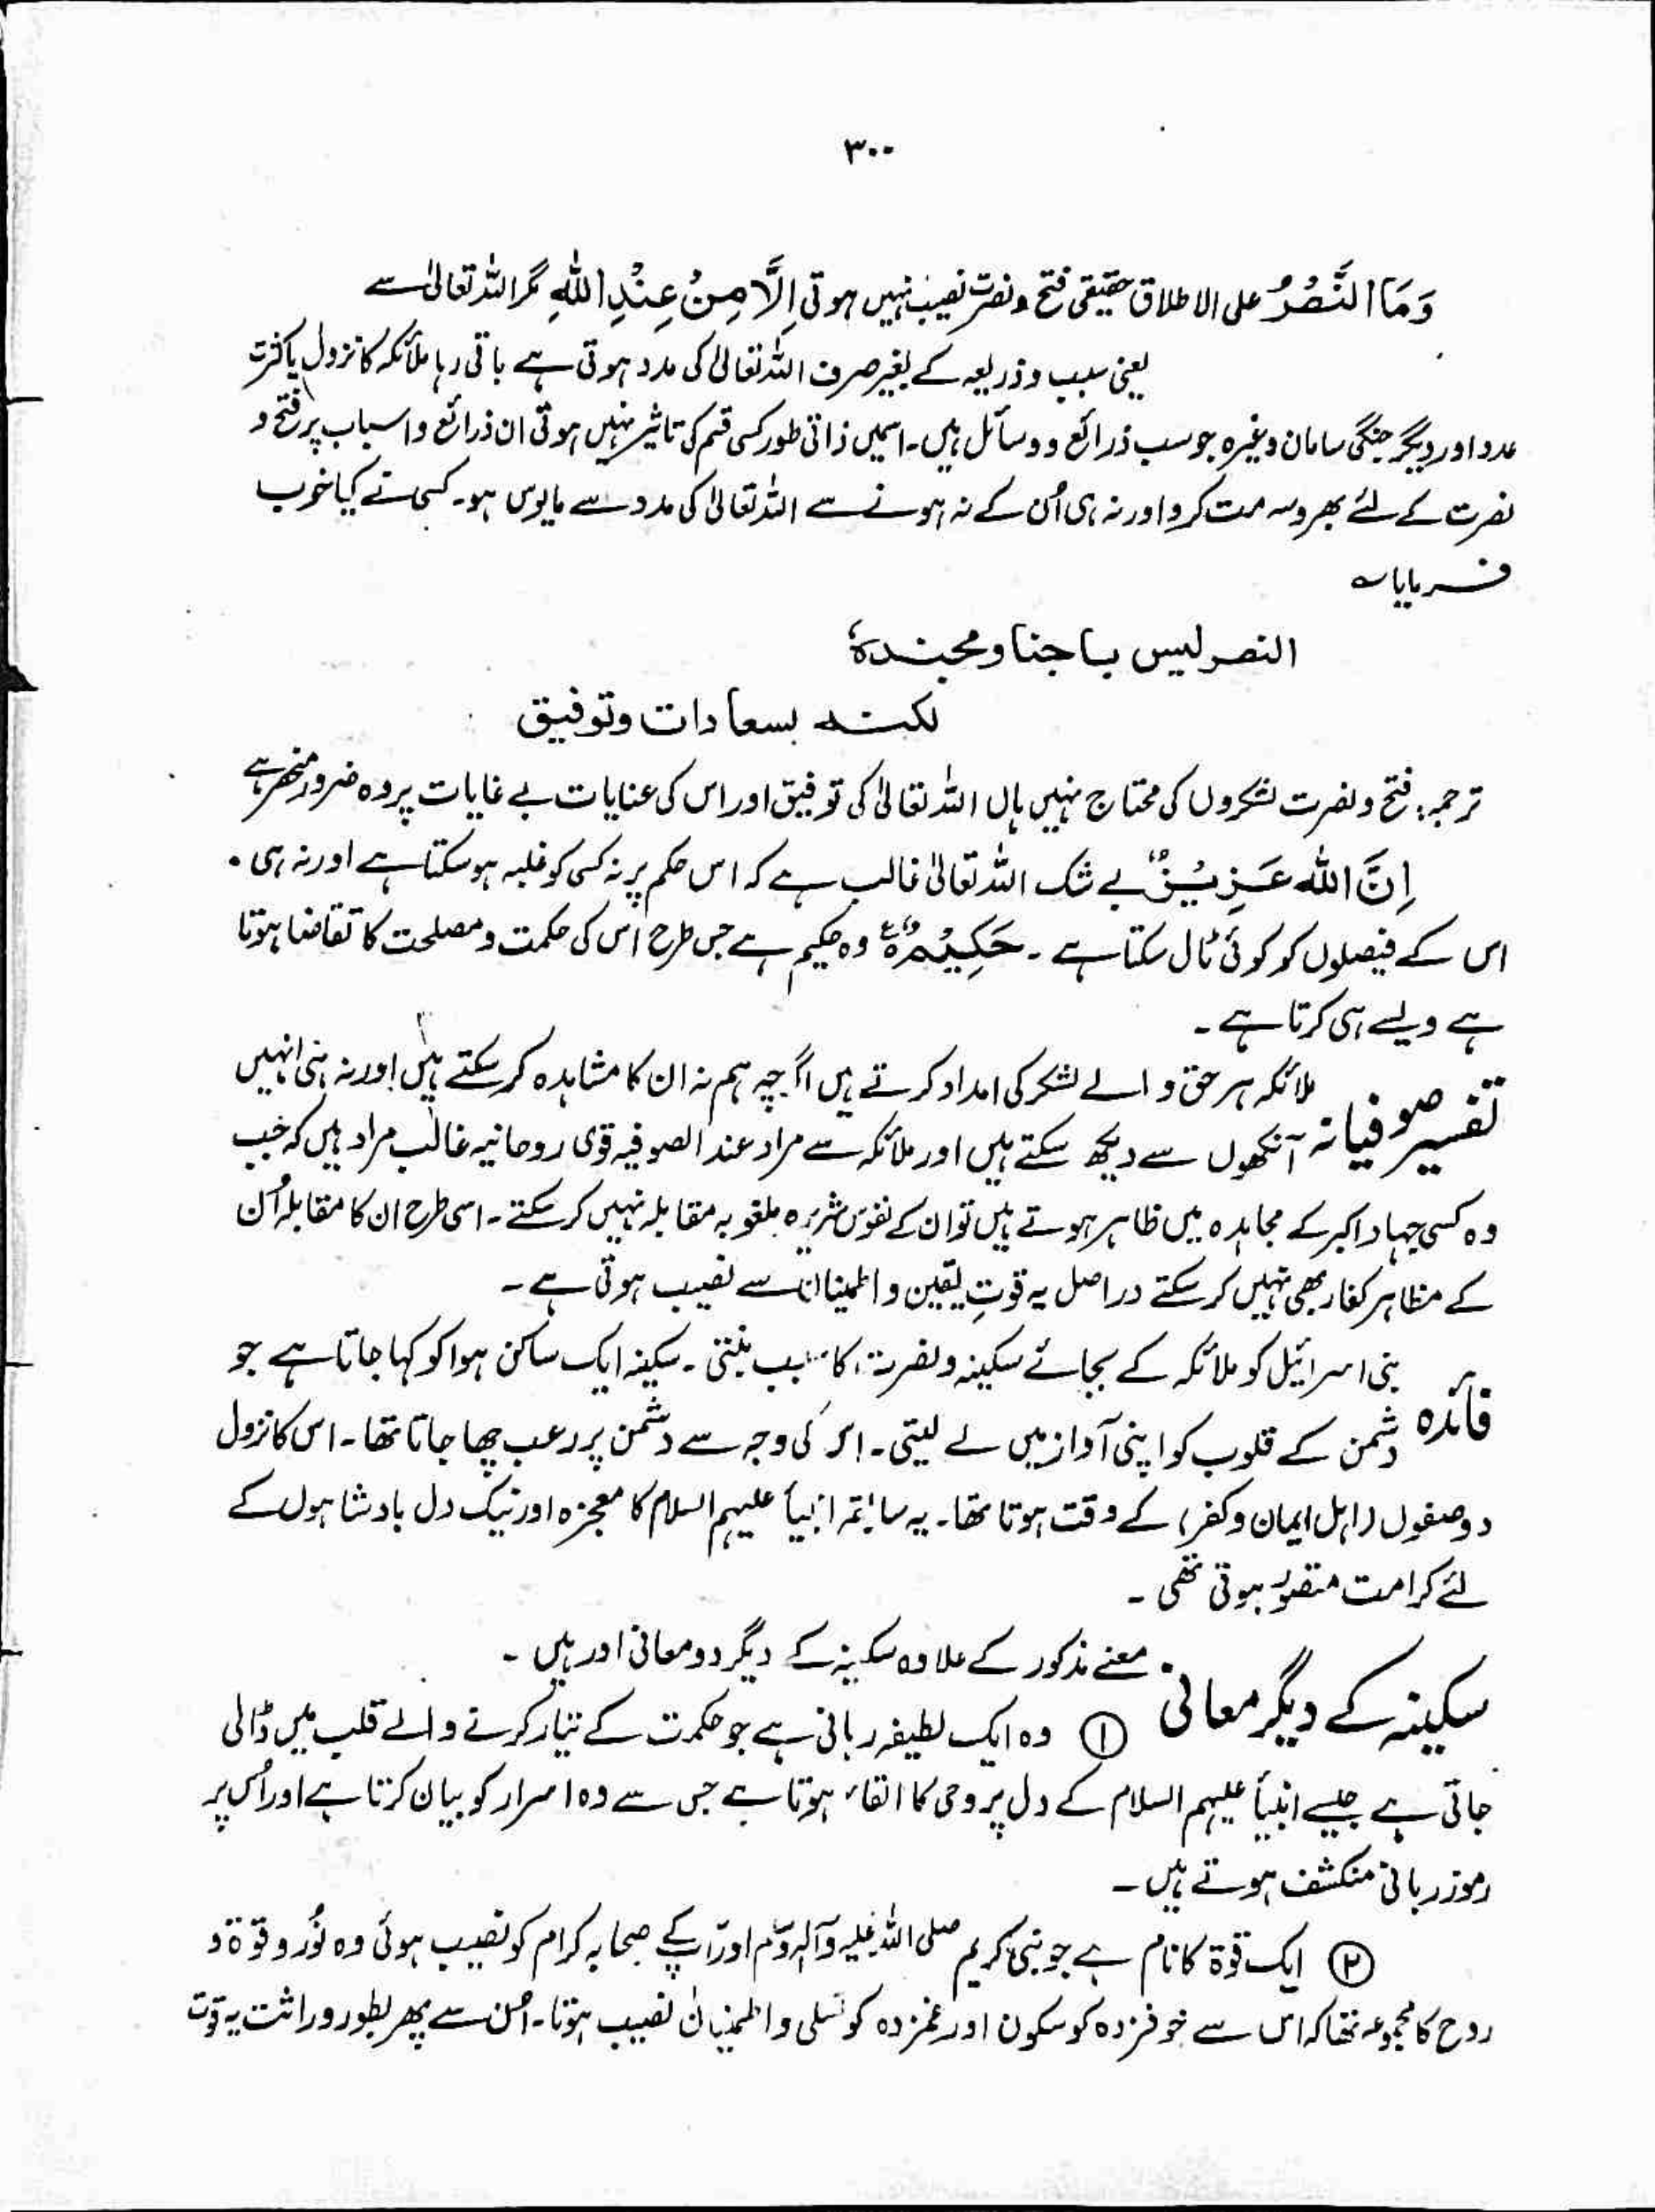 ۳۰۰
وَمَا النَّصْرُ علی الاطلاق حقیقی فتح و نصرت نصیب نہیں ہوتی اِلَّا مِنْ عِنْدِ اللّٰهِ مگر اللہ تعالیٰ سے
یعنی سبب و ذریعہ کے بغیر صرف اللہ تعالیٰ کی مدد ہوتی ہے باقی رہا ملائکہ کا نزول یا کثرت
عدد اور دیگر جنگی سامان وغیرہ جو سب ذرائع و وسائل ہیں۔ اسمیں ذاتی طور کسی قسم کی تاثیر نہیں ہوتی ان ذرائع و اسباب پر فتح و
نصرت کے لئے بھروسہ مت کرو اور نہ ہی اُن کے نہ ہونے سے اللہ تعالیٰ کی مدد سے مایوس ہو۔ کسی نے کیا خوب
فرمایا ؎
النصر لیس باجنا ومجندۃٗ
لکنه بسعادات وتوفیق
ترجمہ: فتح و نصرت لشکروں کی محتاج نہیں ہاں اللہ تعالیٰ کی توفیق اور اس کی عنایات بے غایات پر وہ ضرور منحصر ہے
اِنَّ اللّٰه عَزِیْزٌ بے شک اللہ تعالیٰ غالب ہے کہ اس حکم پر نہ کسی کو غلبہ ہو سکتا ہے اور نہ ہی
اس کے فیصلوں کو کوئی ٹال سکتا ہے ۔ حَکِیْمٌ ہ وہ حکیم ہے جس طرح اس کی حکمت و مصلحت کا تقاضا ہوتا
ہے ویسے ہی کرتا ہے ۔
تفسیر صوفیانہ ملائکہ ہر حق والے لشکر کی امداد کرتے ہیں اگرچہ ہم نہ ان کا مشاہدہ کر سکتے ہیں اور نہ ہی انہیں
آنکھوں سے دیکھ سکتے ہیں اور ملائکہ سے مراد عند الصوفیہ قوی روحانیہ غالب مراد ہیں کہ جب
وہ کسی جہاد اکبر کے مجاہدہ میں ظاہر ہوتے ہیں تو ان کے نفوس شریرہ مغلوبہ مقابلہ نہیں کر سکتے ۔ اسی طرح ان کا مقابلہ اُن
کے مظاہر کفار بھی نہیں کر سکتے دراصل یہ قوتِ یقین و اطمینان سے نصیب ہوتی ہے ۔
فائدہ بنی اسرائیل کو ملائکہ کے بجائے سکینہ و نصرت کا سبب بنتی ۔ سکینہ ایک ساکن ہوا کو کہا جاتا ہے جو
دشمن کے قلوب کو اپنی آواز میں لے لیتی ۔ اس کی وجہ سے دشمن پر رعب چھا جاتا تھا ۔ اس کا نزول
دو صفوں (اہل ایمان و کفر) کے وقت ہوتا تھا ۔ یہ سابقہ انبیأ علیہم السلام کا معجزہ اور نیک دل بادشاہوں کے
لئے کرامت متصور ہوتی تھی ۔
سکینہ کے دیگر معانی معنے مذکور کے علاوہ سکینہ کے دیگر دو معانی اور ہیں ۔
① وہ ایک لطیفہ ربانی ہے جو حکمت کے تیار کرنے والے قلب میں ڈالی
جاتی ہے جیسے انبیأ علیہم السلام کے دل پر وحی کا القاء ہوتا ہے جس سے وہ اسرار کو بیان کرتا ہے اور اُس پر
رموز ربانی منکشف ہوتے ہیں ۔
② ایک قوۃ کا نام ہے جو نبی کریم صلی اللہ علیہ وآلہٖ وسلم اور آپ کے صحابہ کرام کو نصیب ہوئی وہ نُور و قوۃ و
روح کا مجموعہ تھا کہ اس سے خوفزدہ کو سکون اور غمزدہ کو تسلی و اطمینان نصیب ہوتا ۔ اُس سے پھر بطور وراثت یہ قوت